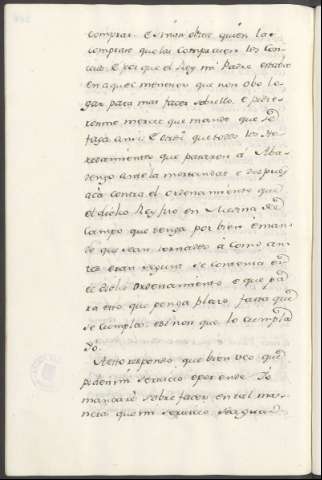 comprar. E si non obier quien las
comprare que las compren los Con
cejos. E por que el Rey mi Padre estubo
en aquel menester que non obo lo
gar para mas facer sobrello. e pidie
ronme merced que mande que se
faga ansi. E otrosi que todos los He
redamientos que pasaron á Aba
dengo ante la mortandad e despues
acá contra el ordenamiento que
el dicho Rey fizo en Medina del
Campo que tenga por bien e man
de que sean tornados á como an
tes eran segun se contenia en
el dicho ordenamiento e que pa
ra esto que ponga plazo fasta que
se cumpla. et si non que lo cumpla
Yo.
A esto respondo que bien veo que
piden mi servicio e por ende Yo
mandaré sobre facer en tal ma
nera que mi servicio sea guar